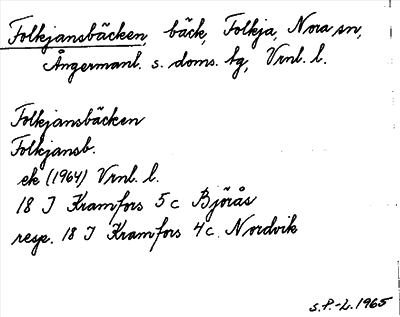 Folkjansbäcken, bäck, Folkja, Nora sn,
Ångermanl. s. doms. hg, Vrnl. l.
Folkjansbäcken
Folkjansb.
ek (1964) Vrnl. l.
18 J Kramfors 5 c Björås
resp. 18 J Kramfors 4 c. Nordvik
S.P.-L. 1965